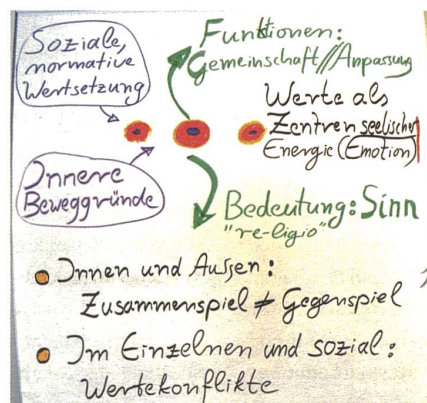 Soziale,
normative
Wertsetzung
Funktionen:
Gemeinschaft//Anpassung
Werte als
Zentren seelischer
Energie (Emotion)
Innere
Beweggründe
Bedeutung: Sinn
"re-ligio"
Innen und Außen:
Zusammenspiel ≠ Gegenspiel
Im Einzelnen und sozial:
Wertekonflikte